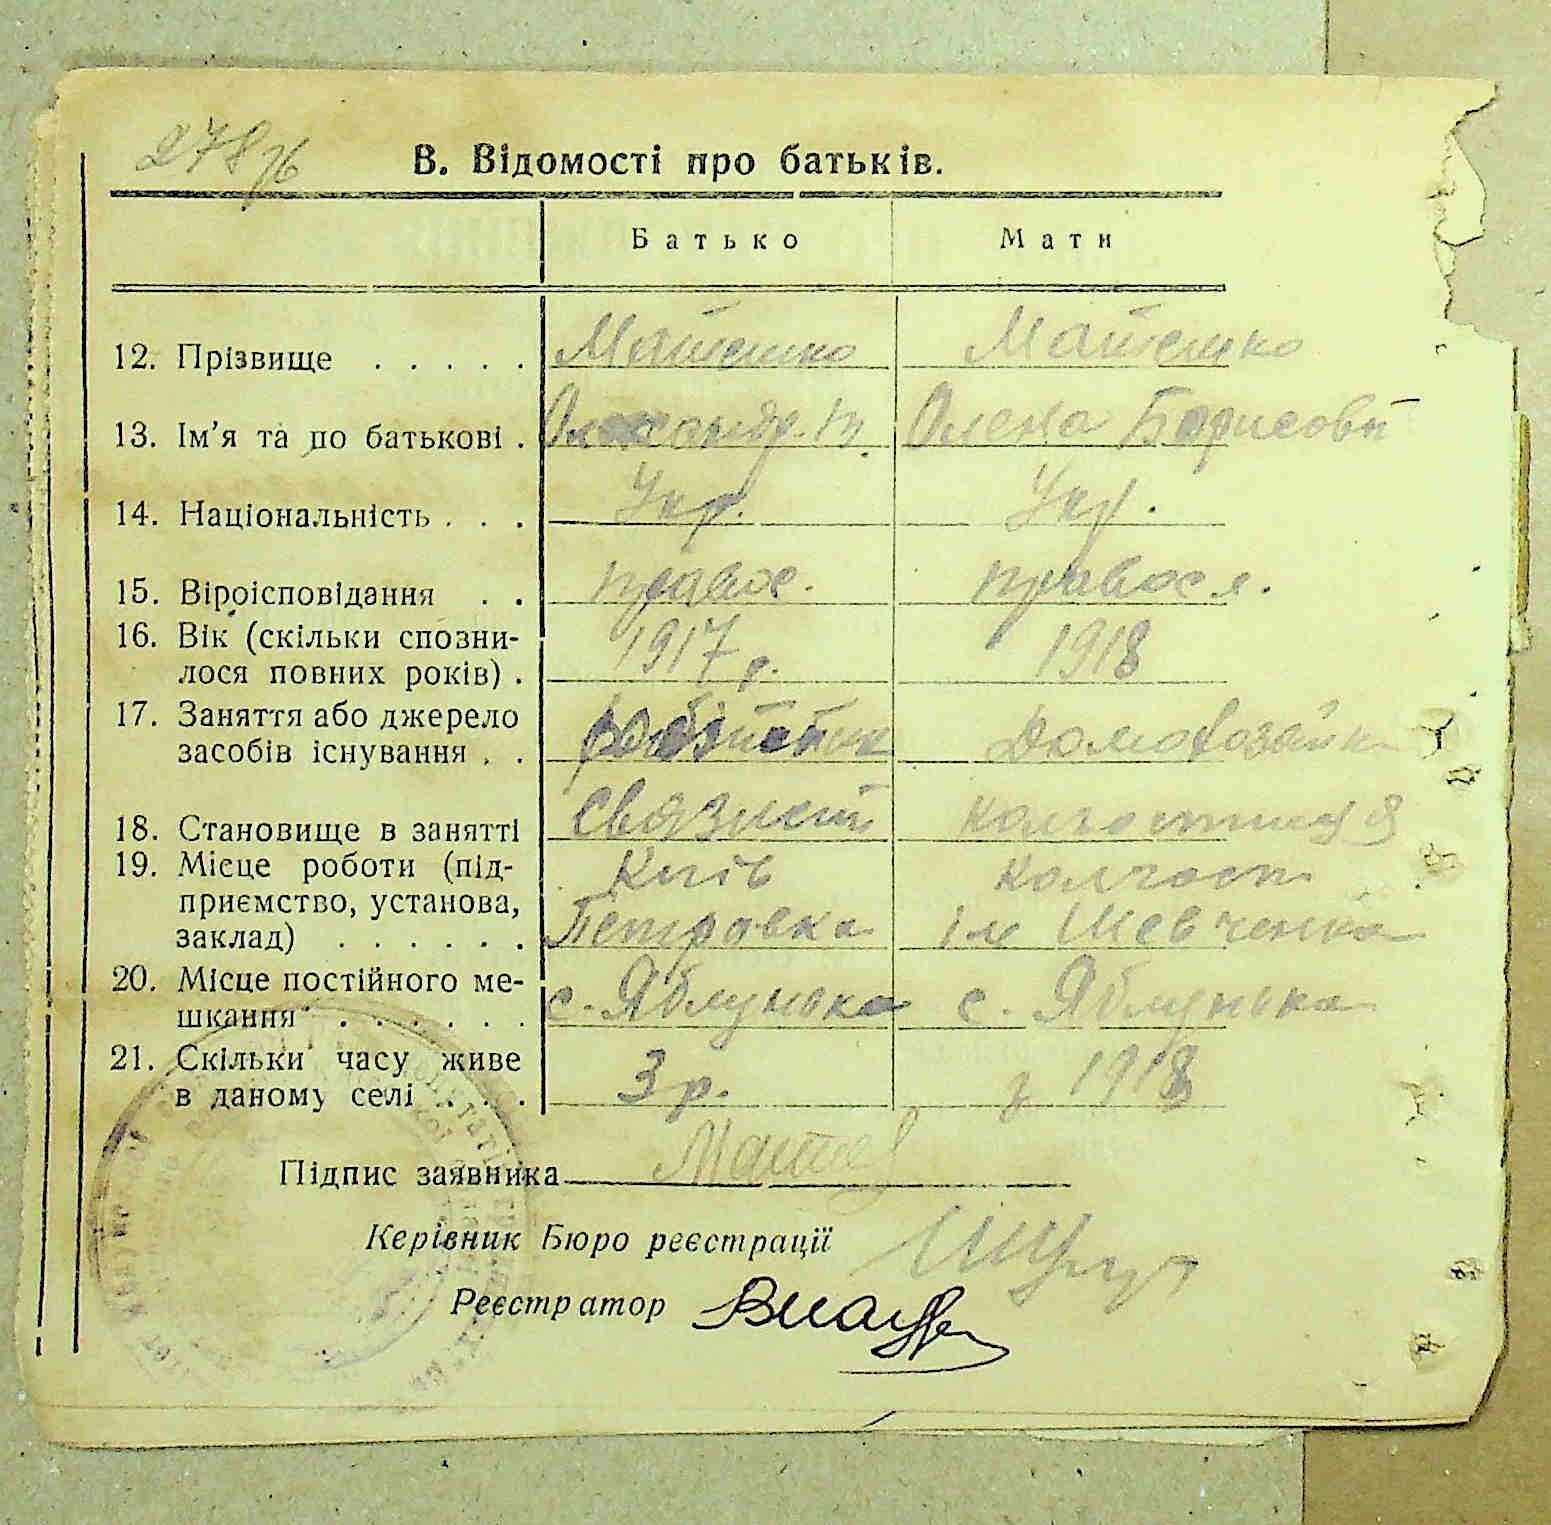 278зб
В. Відомості про батьків.
Батько Мати
12. Прізвище . . . . . Матешко Матешко
13. Ім'я та по батькові . Олександр. Олена Борисовн
14. Національність . . . Укр. Укр.
15. Віроісповідання . . правос. правосл.
16. Вік (скільки спозни-
лося повних років) . 1917 р. 1918
17. Заняття або джерело
засобів існування . . робітник Домохозайк
18. Становище в занятті Связист колгостниця
19. Місце роботи (під- Киів колгосп
приємство, установа, Петровка ім Шевченка
заклад) . . . . . .
20. Місце постійного ме-
шкання . . . . . . с. Яблунька с. Яблунька
21. Скільки часу живе
в даному селі . . . 3 р. з 1918
Підпис заявника
Керівник Бюро реєстрації
Реєстратор